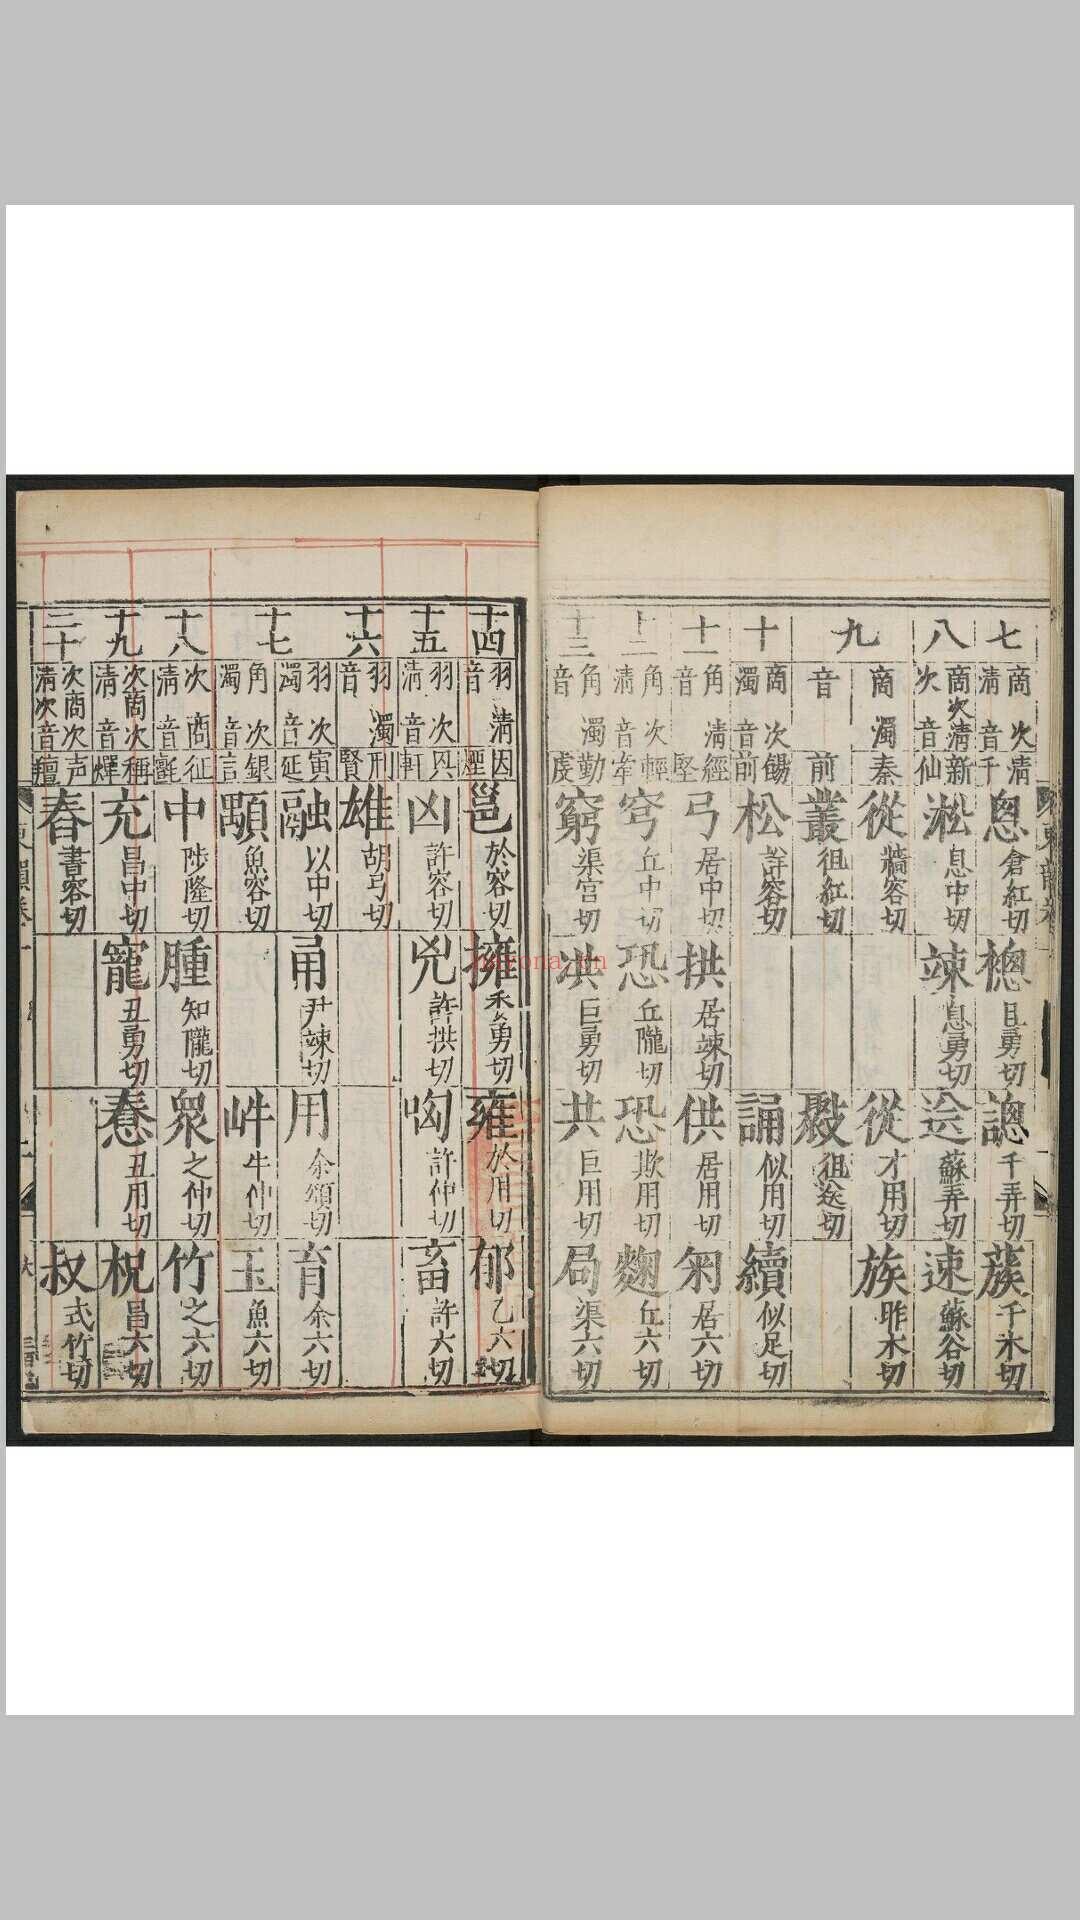 七
商次清
次清音千
悤倉紅切
𢃏
謥千弄切
蔟千木切
八
商次清新
次音仙
淞息中切
竦息勇切
送蘇弄切
速蘇谷切
九
商濁秦
音前
從牆容切
從才用切
族昨木切
叢徂紅切
徂送切
十
商次餳
濁音前
松詳容切
誦似用切
續似足切
十一
角清經
音堅
弓居中切
拱居竦切
供居用切
匊居六切
十二
角次輕
清音牽
穹丘中切
恐丘隴切
恐欺用切
麴丘六切
十三
角濁勤
音虔
窮渠宮切
巨勇切
共巨用切
局渠六切
十四
羽清因
音煙
邕於容切
擁委勇切
雍於用切
郁乙六切
十五
羽次興
清音軒
凶許容切
兇許拱切
哅許仲切
畜許六切
十六
羽濁刑
音賢
雄胡弓切
十七
羽次寅
濁音延
融以中切
甬尹竦切
用余頌切
育余六切
角次銀
濁音言
顒魚容切
牛仲切
玉魚六切
十八
次商征
清音氈
中陟隆切
腫知隴切
眾之仲切
竹之六切
十九
次商次稱
清音燀
充昌中切
寵丑勇切
惷丑用切
柷昌六切
二十
次商次声
清次音羶
舂書容切
叔式竹切